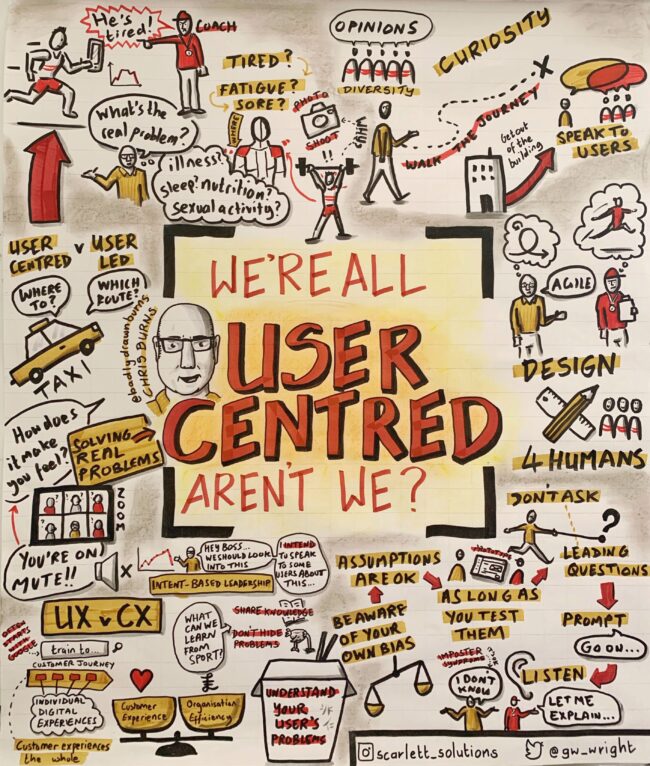 He's
tired!
COACH
What's the
real problem?
TIRED?
FATIGUE?
SORE?
WHERE
illness?
sleep? nutrition?
sexual activity?
PHOTO
SHOOT
!!
WHYS
OPINIONS
DIVERSITY
CURIOSITY
X
WALK THE JOURNEY
Get out
of the
building
SPEAK TO
USERS
USER
CENTRED
V
USER
LED
WHERE
TO?
WHICH
ROUTE?
TAXI
@badlydrawnburns
CHRIS BURNS
WE'RE ALL
USER
CENTRED
AREN'T WE?
AGILE
DESIGN
4 HUMANS
How does
it make
you feel?
SOLVING
REAL
PROBLEMS
ZOOM
YOU'RE ON
MUTE!!
X
HEY BOSS...
WE SHOULD LOOK
INTO THIS
I INTEND
TO SPEAK
TO SOME
USERS ABOUT
THIS...
INTENT-BASED LEADERSHIP
DON'T ASK
?
LEADING
QUESTIONS
PROMPT
GO ON...
LISTEN
LET ME
EXPLAIN...
I DON'T
KNOW
IMPOSTER
SYNDROME
ASSUMPTIONS
ARE OK
PROTOTYPE
AS LONG AS
YOU TEST
THEM
BE AWARE
OF YOUR
OWN BIAS
UX v CX
OFTEN
STARTS
WITH
GOOGLE
train to...
CUSTOMER JOURNEY
INDIVIDUAL
DIGITAL
EXPERIENCES
Customer experiences
the whole
WHAT
CAN WE
LEARN
FROM
SPORT?
SHARE KNOWLEDGE
DON'T HIDE
PROBLEMS
£
Customer
Experience
Organisation
Efficiency
UNDERSTAND
YOUR
USER'S
PROBLEMS
scarlett_solutions
@gw_wright